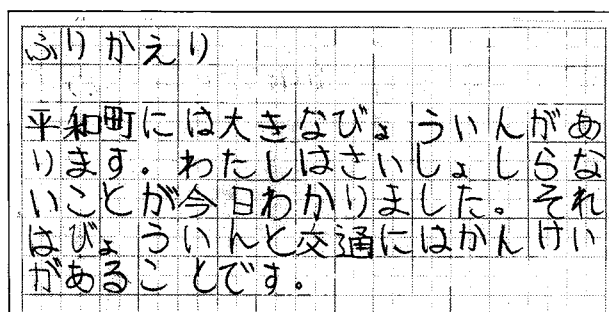 ふりかえり
平和町には大きなびょういんがあ
ります。わたしはさいしょしらな
いことが今日わかりました。それ
はびょういんと交通にはかんけい
があることです。